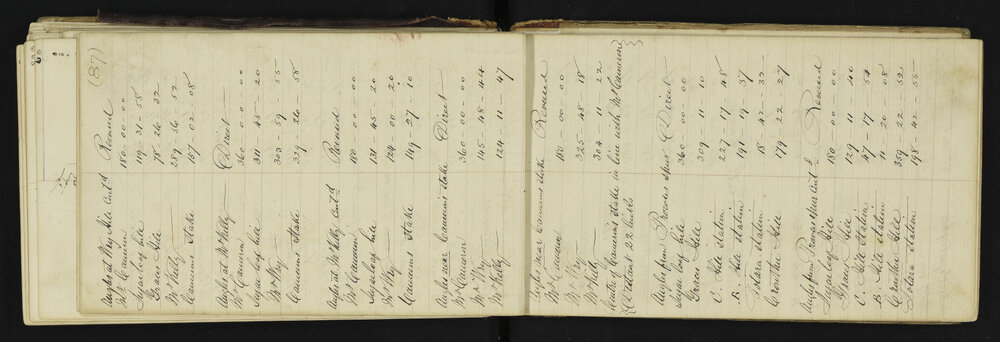 (87)
Angles at Wry Hill Cont'd Reversed
Mt Cameron 180-00-00
Sugar loaf Hill 119-31-58
Graces Hill 78-26-52
Mt Kelly 289-56-52
Camerons Stake 157-02-08
Angles at Mt Kelly Direct
Mt Cameron 360-00-00
Sugar loaf Hill 311-45-20
Mt Wry 303-59-55
Camerons Stake 329-26-58
Angles at Mt Kelly Cont'd Reversed
Mt Cameron 180-00-00
Sugar loaf Hill 131-45-20
Mt Wry 124-00-20
Camerons Stake 149-27-10
Angles near Cameron's Stake Direct
Mt Cameron 360-00-00
Mt Wry 145-48-44
Mt Kelly 124-11-47
Angles near Camerons stake Reversed
Mt Cameron 180-00-00
Mt Wry 325-48-18
Mt Kelly 304-11-22
Centre of Camerons Stake in line with Mt Cameron
Distant 22 links
Angles from Prowses Spur Direct
Sugar loaf Hill 360-00-00
Graces Hill 309-11-10
C. Hill Station 227-17-48
B. Hill Station 191-19-37
Station 18-42-32
Crowther Hill 179-22-27
Angles from Prowses Spur Cont'd Reversed
Sugar loaf Hill 180-00-00
Graces Hill 129-11-40
C. Hill Station 47-17-54
B. Hill Station 11-20-08
Crowther Hill 359-22-52
Station 198-42-55